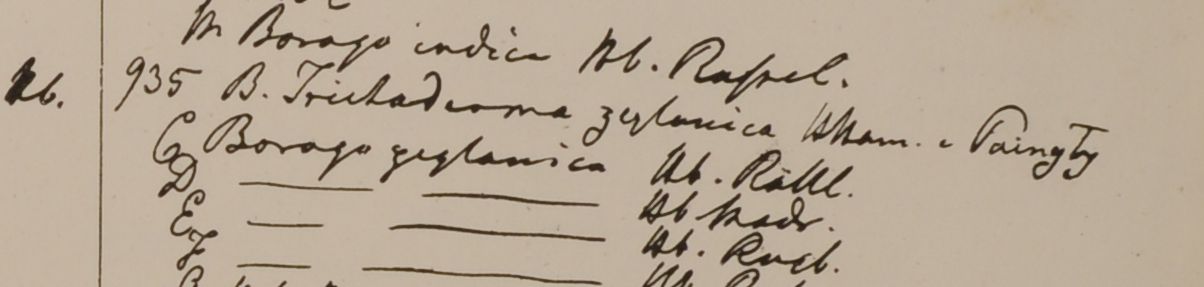 M Borago indica Hb. Russel.
Hb. 935 B. Trichaderma zeylanica HHam. e Paingty
C Borago zeylanica Hb. Rottl.
D — — Hb Madr.
E — — Hb. Roxb.
F — —